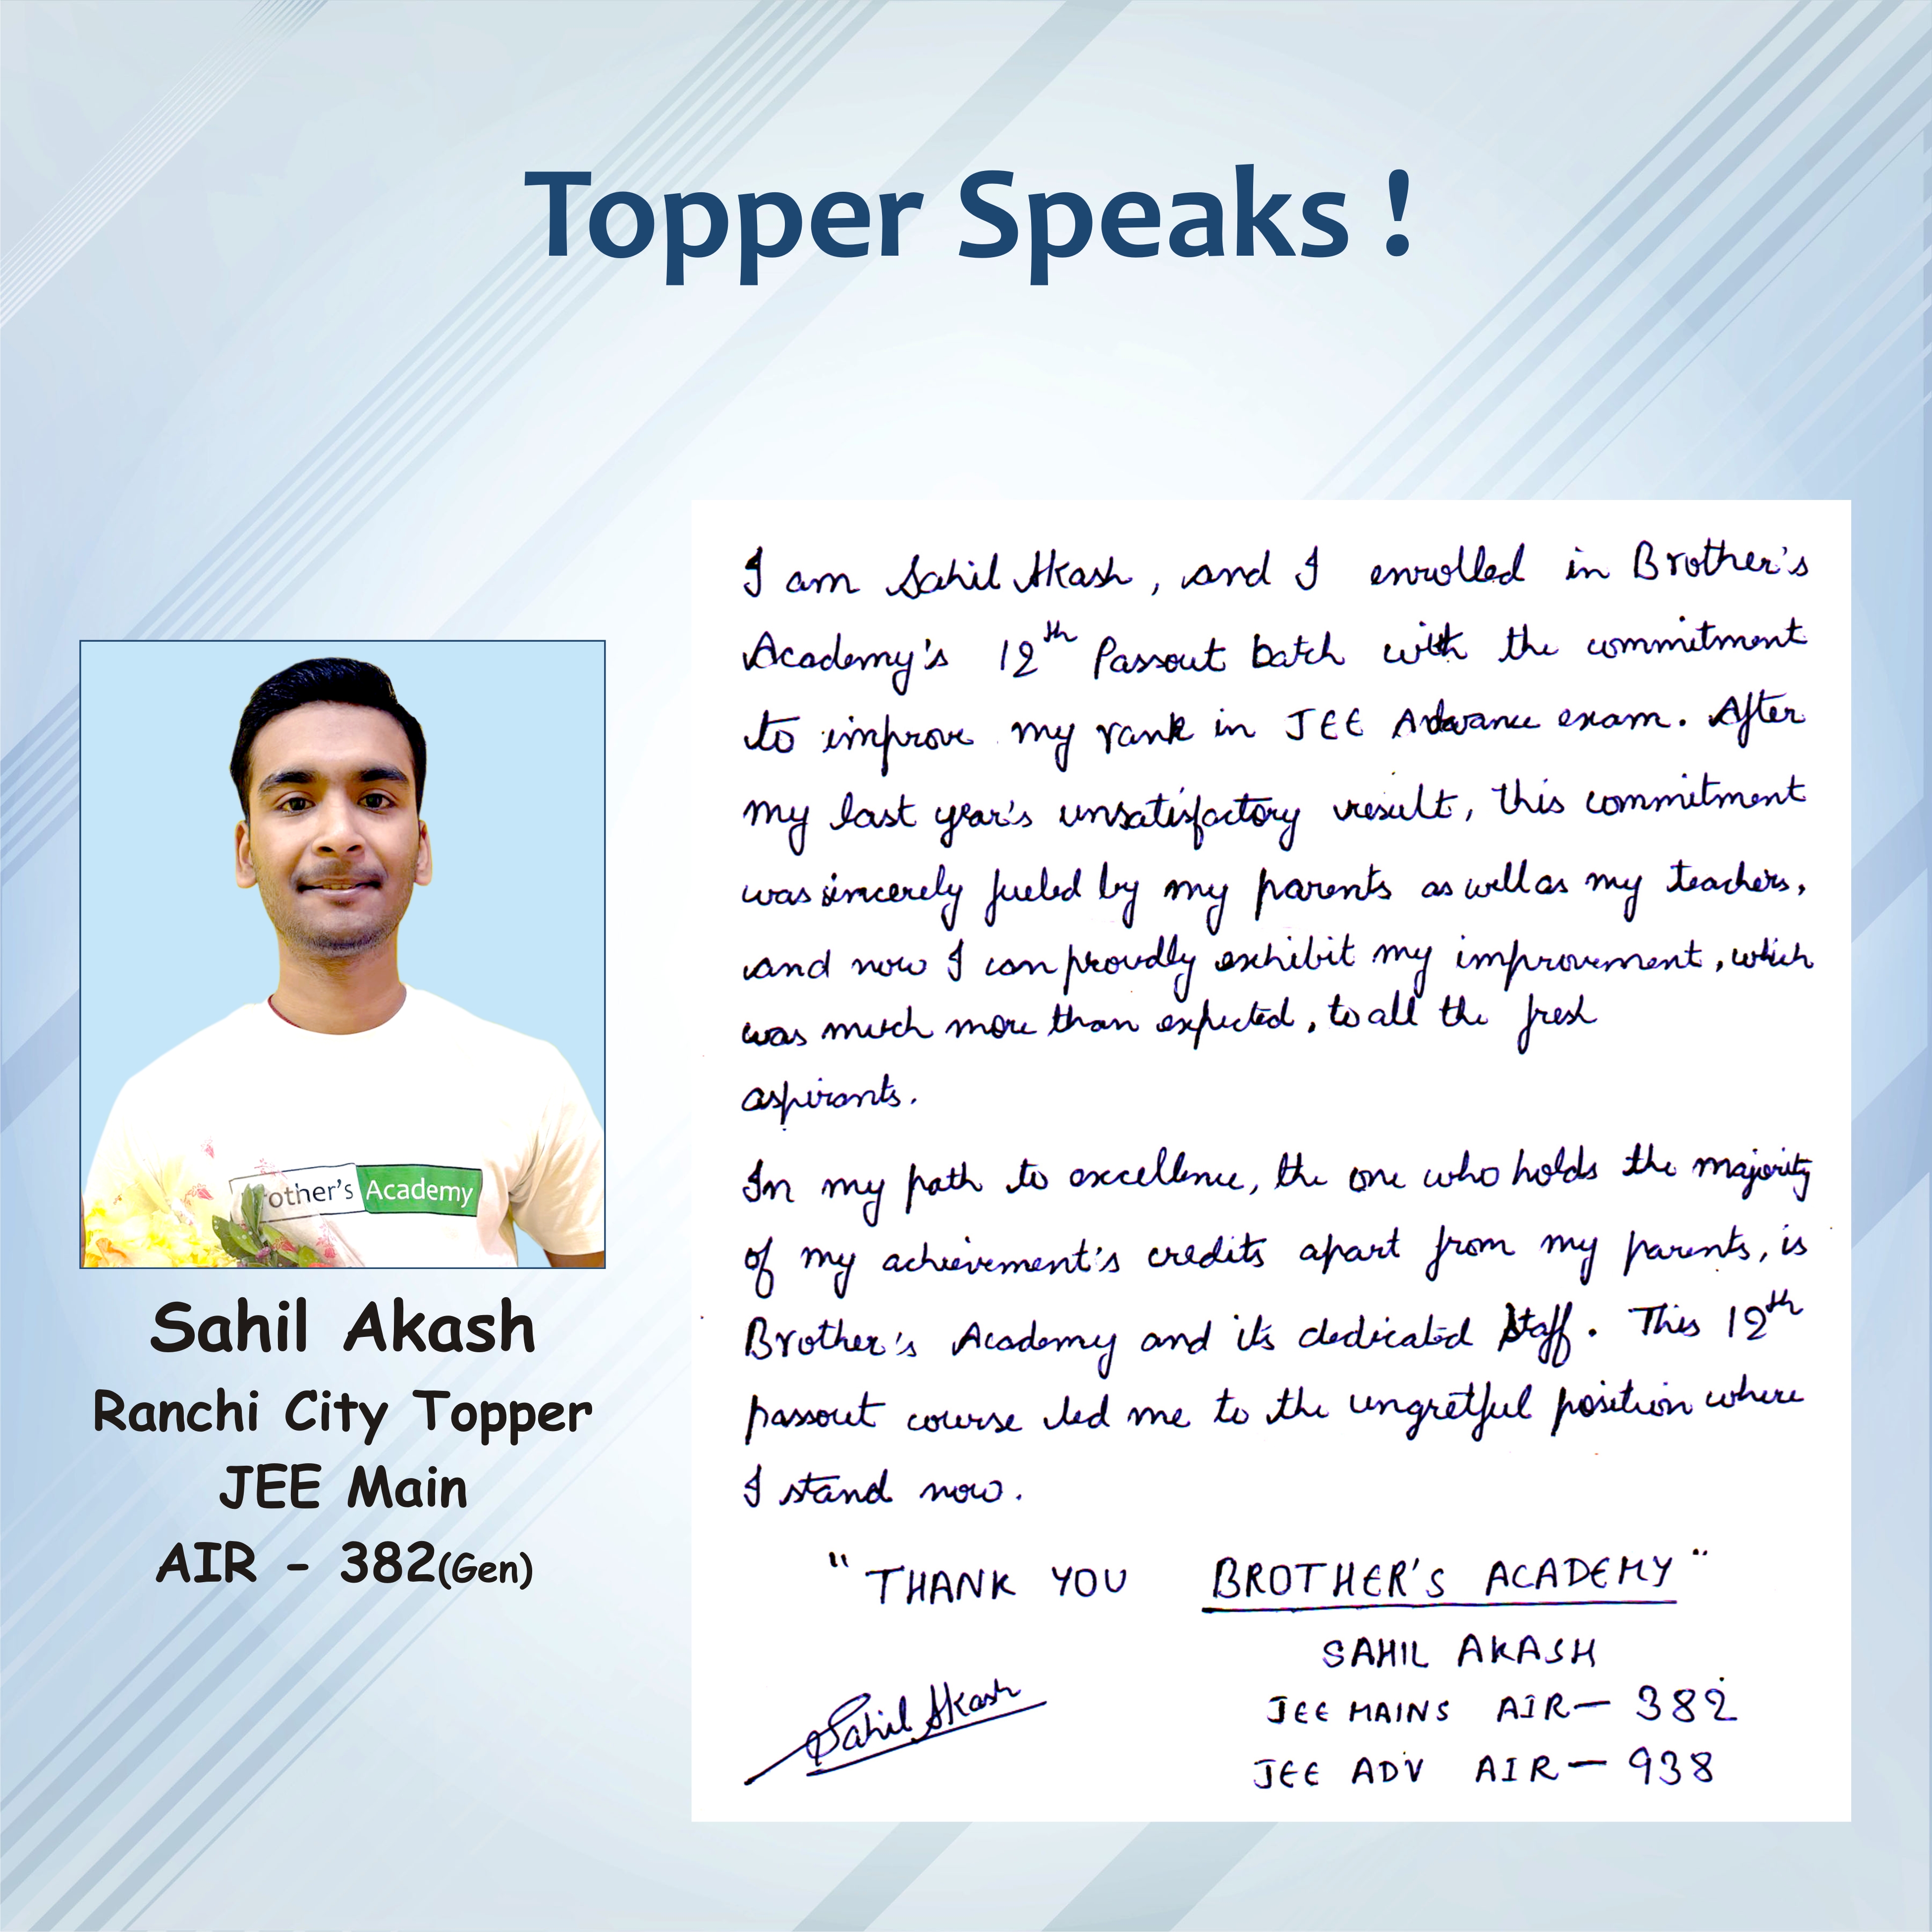 Topper Speaks !
I am Sahil Akash, and I enrolled in Brother's
Academy's 12th Passout batch with the commitment
to improve my rank in JEE Advance exam. After
my last year's unsatisfactory result, this commitment
was sincerely fueled by my parents as well as my teachers,
and now I can proudly exhibit my improvement, which
was much more than expected, to all the fresh
aspirants.
In my path to excellence, the one who holds the majority
of my achievement's credits apart from my parents, is
Brother's Academy and its dedicated staff. This 12th
passout course led me to the ungretful position where
I stand now.
"THANK YOU BROTHER'S ACADEMY"
SAHIL AKASH
JEE MAINS AIR - 382
JEE ADV AIR - 938
Sahil Akash
other's Academy
Sahil Akash
Ranchi City Topper
JEE Main
AIR - 382(Gen)